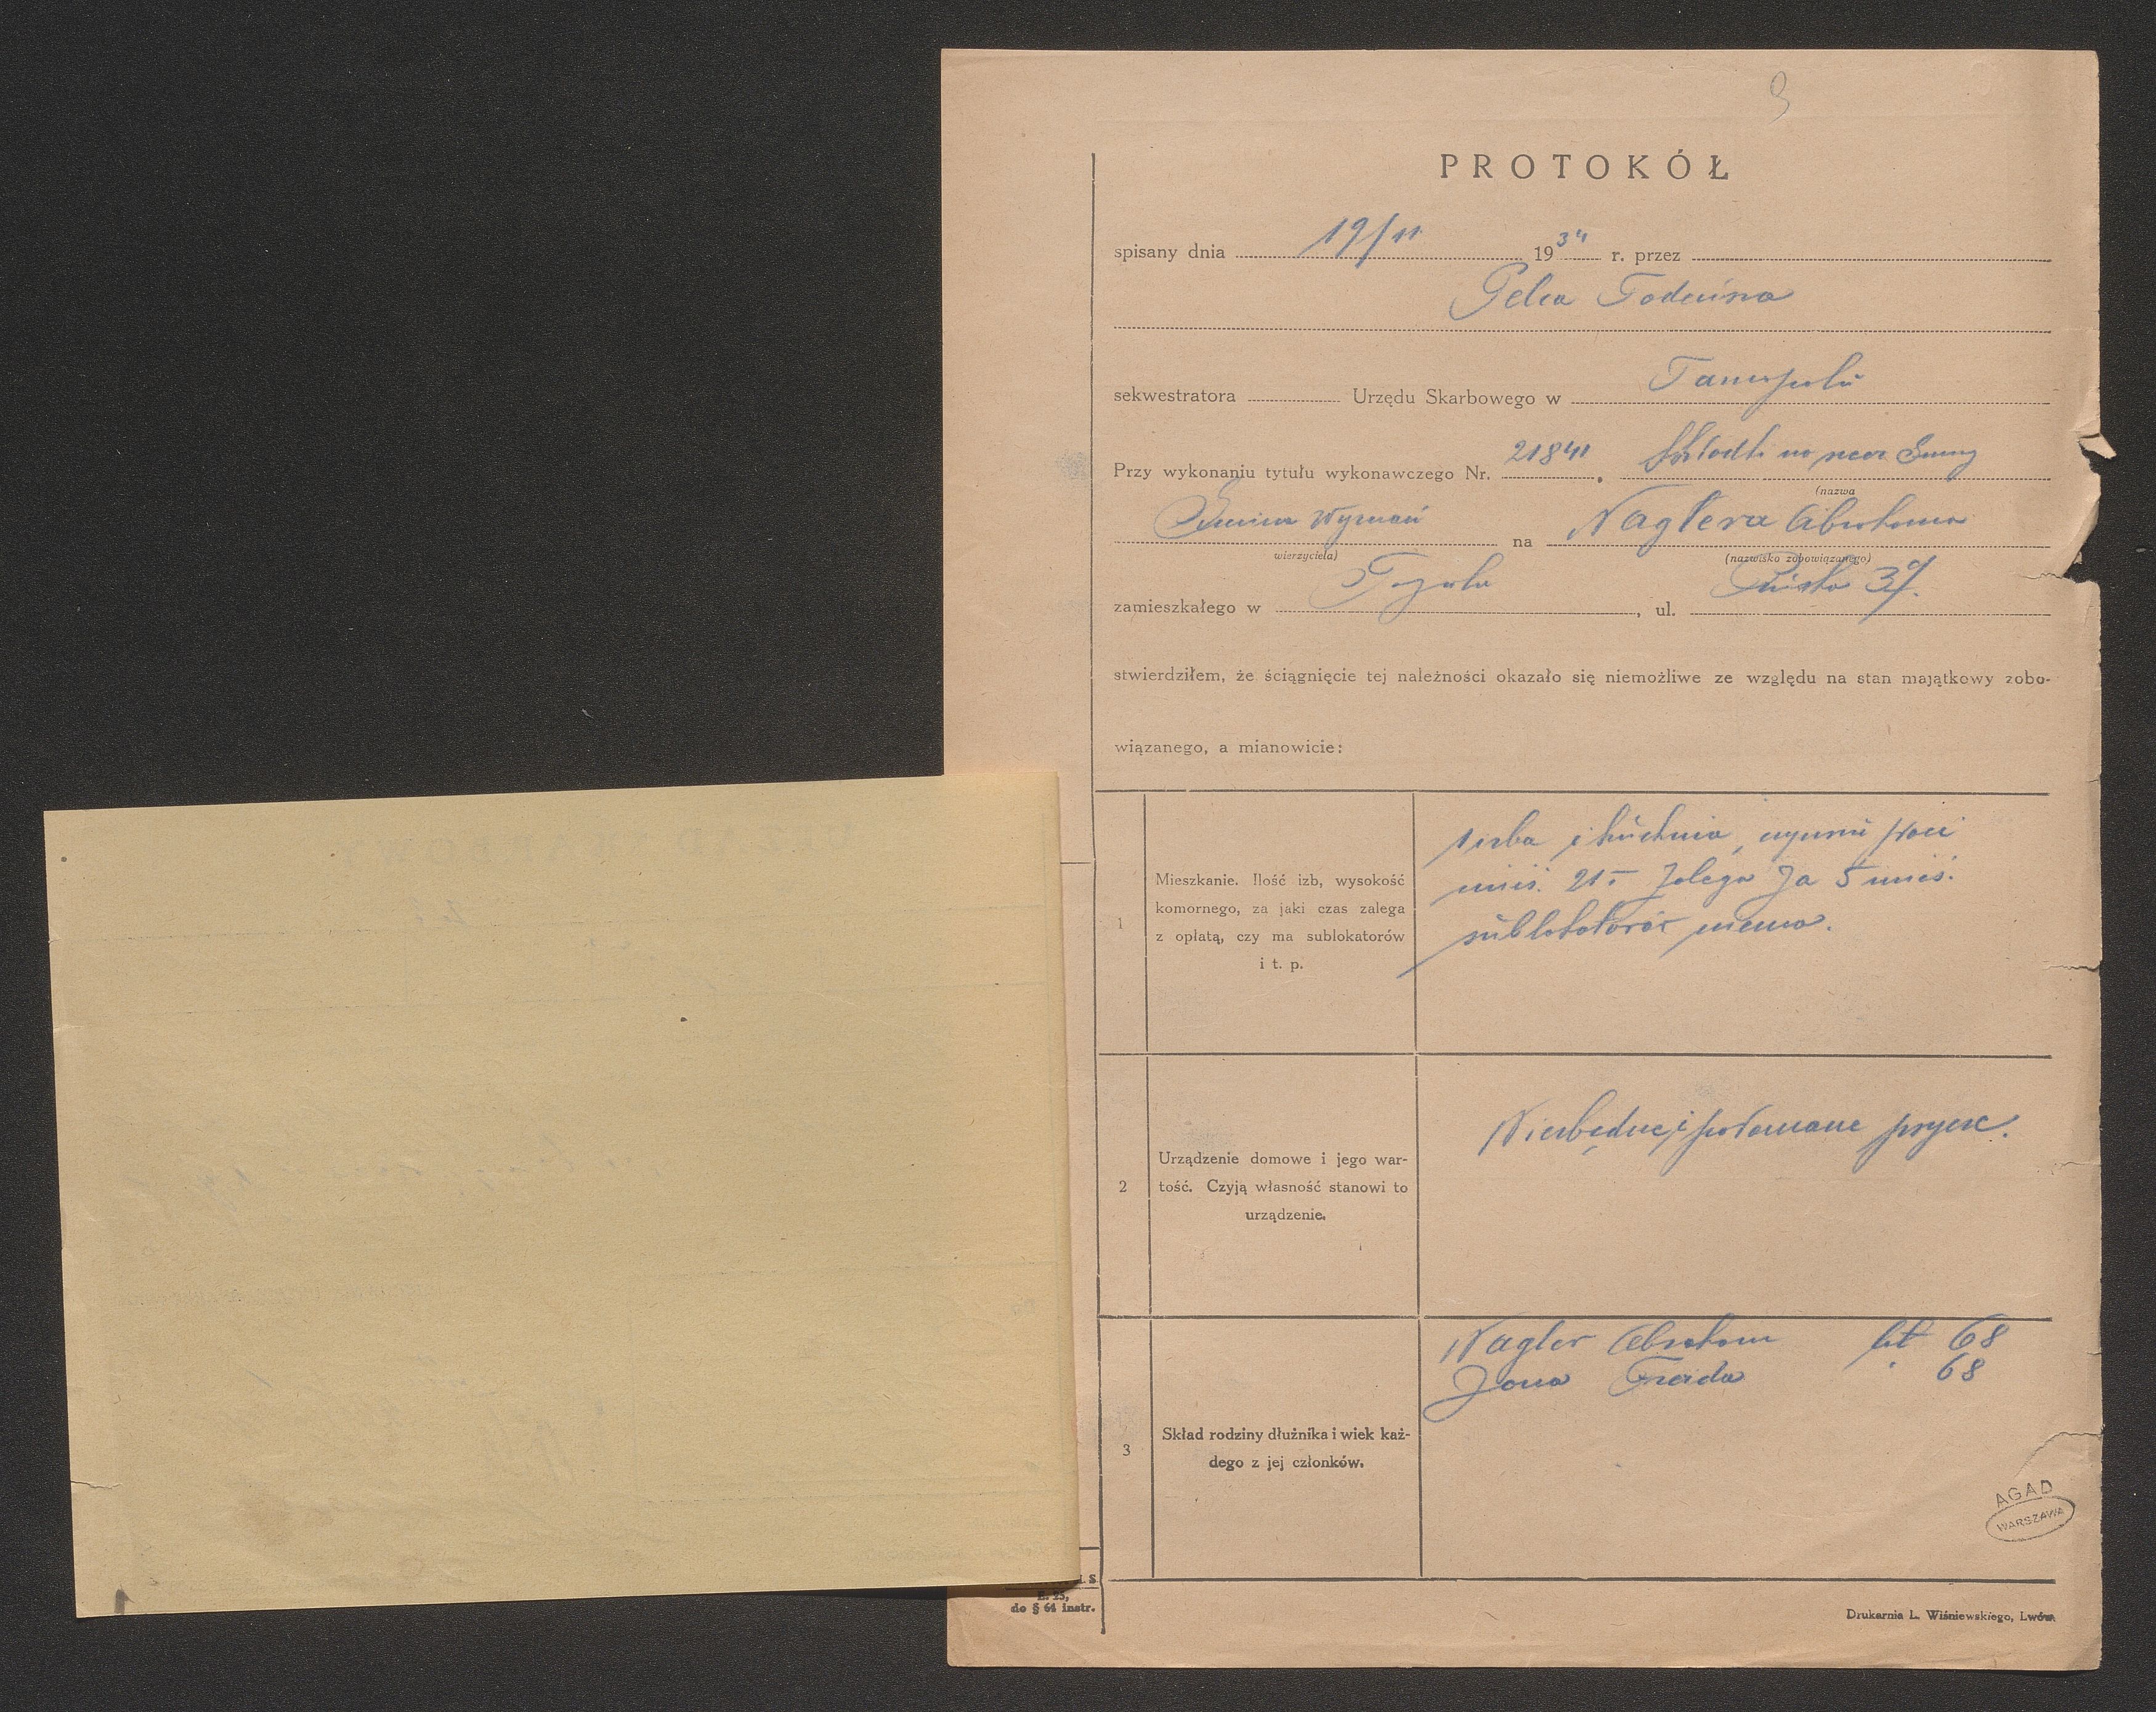 9
PROTOKÓŁ
spisany dnia 19/11 1934 r. przez
Pelca Tadeusza
sekwestratora Urzędu Skarbowego w Tarnopolu
Przy wykonaniu tytułu wykonawczego Nr. 21841, Składki na rzecz Gminy
(nazwa
Gmina Wyznań na Naglera Abrahama
wierzyciela) (nazwisko zobowiązanego)
zamieszkałego w Tarnopolu, ul. 37.
stwierdziłem, że ściągnięcie tej należności okazało się niemożliwe ze względu na stan majątkowy zobo-
wiązanego, a mianowicie:
1
Mieszkanie. Ilość izb, wysokość
komornego, za jaki czas zalega
z opłatą, czy ma sublokatorów
i t. p.
1 izba i kuchnia, czynszu płaci
mies. 21 zalega za 5 mies.
sublokatorów niema.
2
Urządzenie domowe i jego war-
tość. Czyją własność stanowi to
urządzenie.
Niezbędne i połamane
3
Skład rodziny dłużnika i wiek każ-
dego z jej członków.
Nagler Abraham lat 68
Żona Freida " 68
AGAD
WARSZAWA
do § 64 instr.
Drukarnia L. Wiśniewskiego, Lwów.